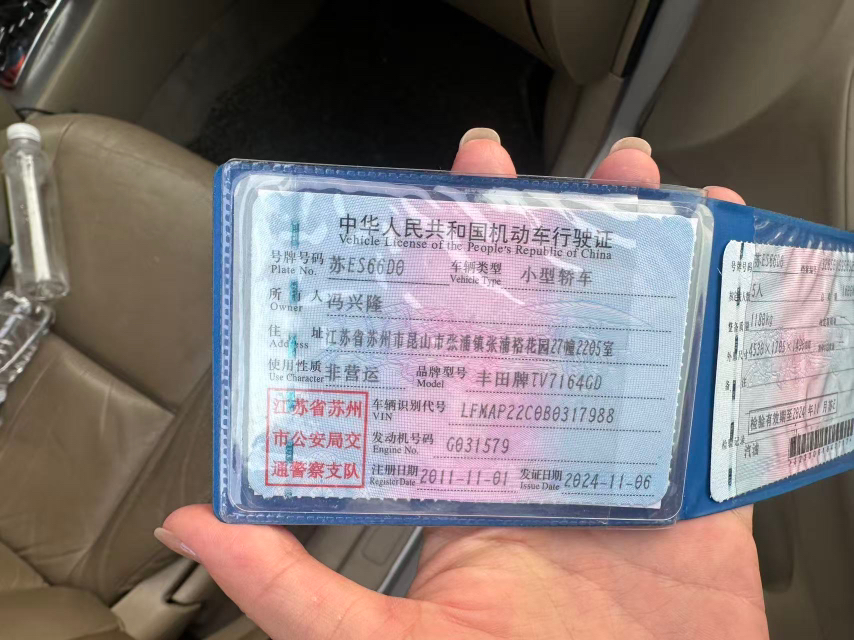 中华人民共和国机动车行驶证
Vehicle License of the People's Republic of China
号牌号码 苏ES66D0 车辆类型 小型轿车
Plate No. Vehicle Type
所有人 冯兴隆
Owner
住址 江苏省苏州市昆山市张浦镇张浦裕花园27幢2205室
Address
使用性质 非营运 品牌型号 丰田牌TV7164GD
Use Character Model
江苏省苏州
市公安局交
通警察支队
车辆识别代号 LFMAP22C0B0317988
VIN
发动机号码 G031579
Engine No.
注册日期 2011-11-01 发证日期 2024-11-06
Register Date Issue Date
号牌号码
5人
1180kg
汽油